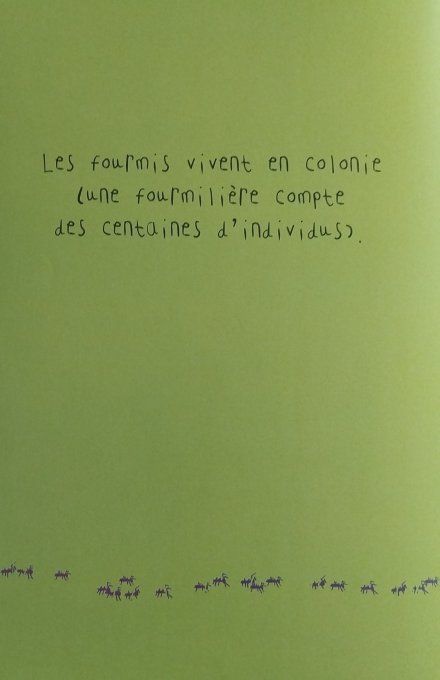 Les fourmis vivent en colonie
(une fourmilière compte
des centaines d'individus).